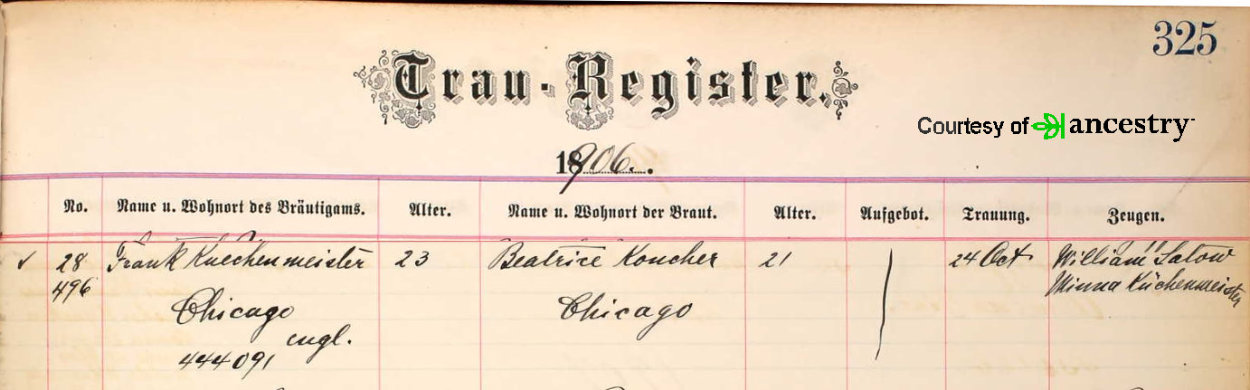 325
Trau-Register.
Courtesy of ancestry
1906.
No. Name u. Wohnort des Bräutigams. Alter. Name u. Wohnort der Braut. Alter. Aufgebot. Trauung. Zeugen.
28 Frank Kuechenmeister 23 Beatrice Koucher 21 24 Oct William Satow
496 Minna Küchenmeister
Chicago Chicago
engl.
444091